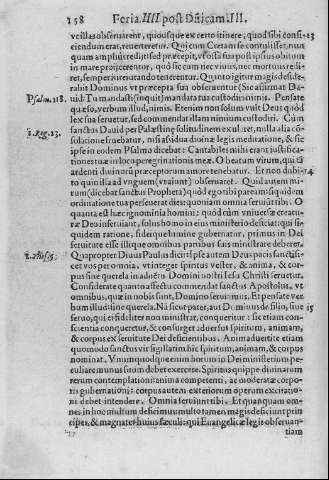 158 Feria. IIII post Dñicam. III.
ve illas obseruarent, quousque ex certo itinere, quod sibi consi- 13
ciendum erat, reuerteretur. Qui cum Cretam se contulisset, nun
quam amplius redijt: sed præcepit, vt ossa sua post ipsius obitum
in mare projicerentur, quo sic cum nec viuus, nec mortuus rediret,
semper iurati tenerentur. Quanto igitur magis desiderabit
Dominus vt præcepta sua obseruentur (Sic asirmat Da-
Psalm. 118. uid: Tu mandasti (inquit) mandata tua custodiri nimis. Pensate
quæso, verbum illud, nimis. Etenim non solum vult Deus quòd
lex sua seruetur, sed commendat illam nimium custodiri. Cùm
1. Reg. 23. sanctus Dauid per Palæstinę solitudinem exularet, nulla alia consolatione
fruebatur, nisi assidua diuinæ legis meditatione, & sic
ipse in eodem Psalmo dicebat: Cantabiles mihi erant iustificationes
tuæ in loco peregrinationis meæ. O beatum virum, qui tã
ardenti diuinorũ præceptorum amore tenebatur. Et non dubi- 14
to quin illa ad vnguem (vt aiunt) obseruaret. Quid autem mirum
(dicebat sanctus Propheta) quòd ego tibi paream: siquidem
ordinatione tua perseuerat dies: quoniam omnia seruiũt tibi. O
quanta est hæc ignominia homini: quòd cùm vniuersæ creaturæ
Deo inseruiant, solus homo in eius ministerio deficiat: qui siquidem
ratione, fideique lumine gubernatur, primus in Dei
seruitute esse illique omnibus partibus suis ministrare deberet.
1. Thes. 5. Quapropter Diuus Paulus dicit: Ipse autem Deus pacis sanctificet
vos per omnia, vt integer spiritus vester, & anima, & corpus
sine querela in aduẽtu Domini nostri Iesu Christi seruetur.
Considerate quanto affectu commendat sanctus Apostolus, vt
omnibus, quæ in nobis sunt, Domino seruiamus. Et pensate verbum
illud: sine querela. Nã sicut pater, aut Dominus de filio, siue 15
seruo, qui ei fideliter non ministrat, conqueritur: sic etiam conscientia
conqueretur, & consurget aduersus spiritum, animam,
& corpus ex seruitute Dei deficientibus. Animaduertite etiam
quomodo sanctus vir sigillatim hic spiritum, animam, & corpus
nominat. Vnumquodque enim horum in Dei ministerium peculiare
munus suum debet exercere. Spiritus quippe diuinarum
rerum contemplationi: anima competenti, ac moderatæ corporis
gubernationi: corpus autem exteriorum operum excitationi
debet intendere. Omnia seruiunt tibi. Et quanquam omnes
in hoc nimium deficimus: multo tamen magis deficiunt principes,
& magnates huius sæculi: qui Euangelicæ legis obseruan-
tiam